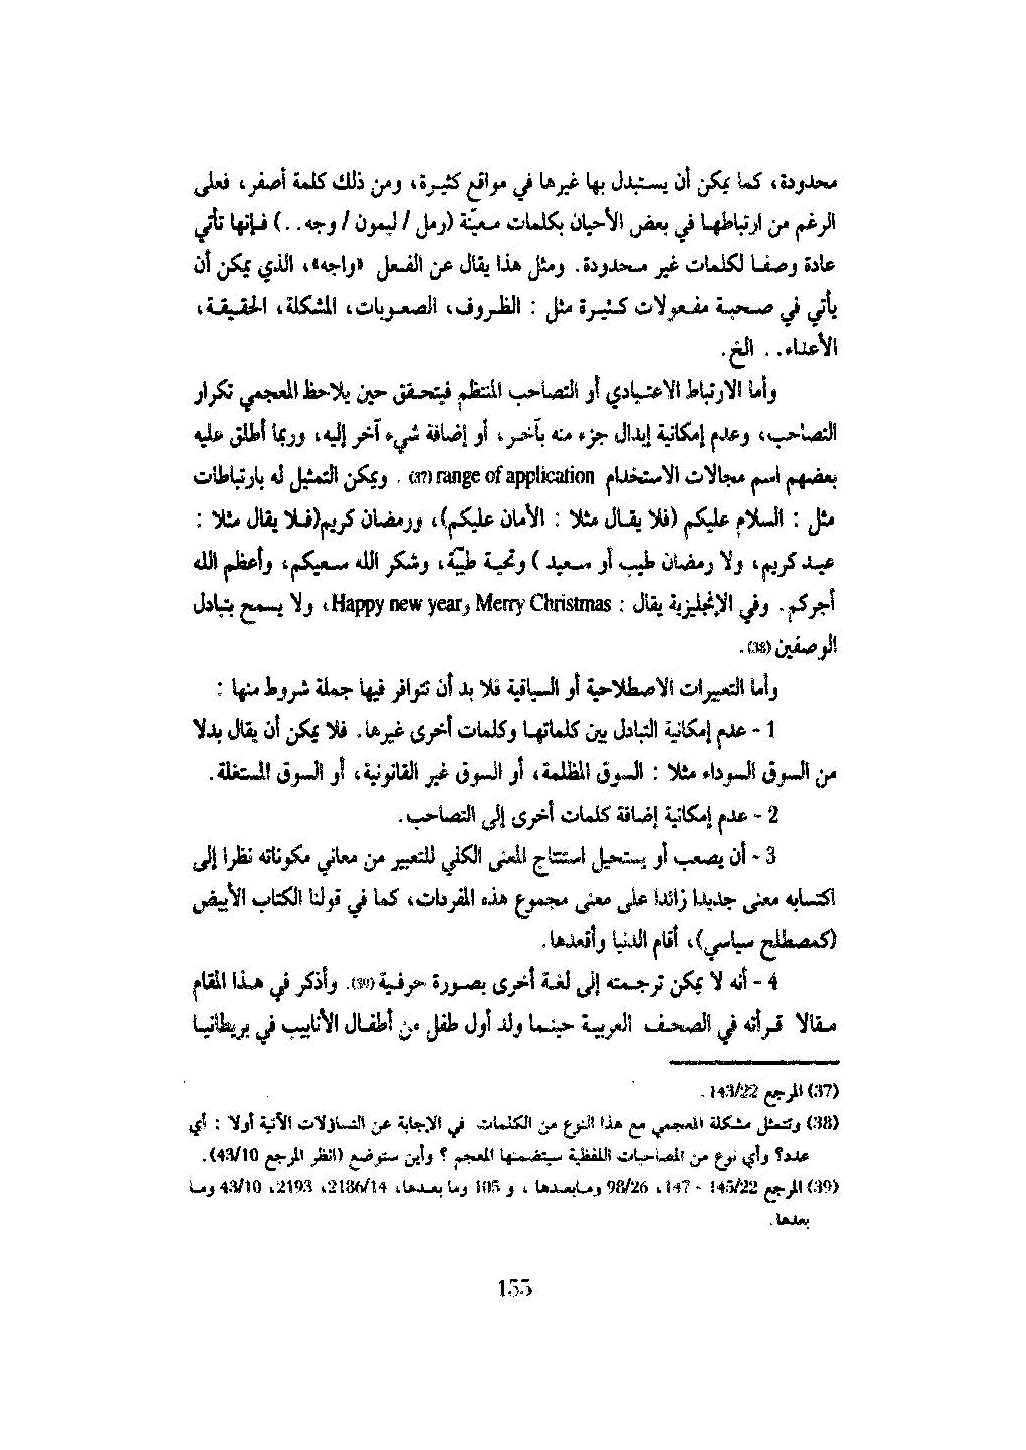 محدودة، كما يمكن أن يستبدل بها غيرها في مواقع كثيرة، ومن ذلك كلمة أصفر، فعلى
الرغم من ارتباطها في بعض الأحيان بكلمات معيّنة (رمل / ليمون / وجه . .) فإنها تأتي
عادة وصفا لكلمات غير محدودة. ومثل هذا يقال عن الفعل «واجه»، الذي يمكن أن
يأتي في صحبة مفعولات كثيرة مثل : الظروف، الصعوبات، المشكلة، الحقيقة،
الأعداء. . الخ.
وأما الارتباط الاعتيادي أو التصاحب المنتظم فيتحقق حين يلاحظ المعجمي تكرار
التصاحب، وعدم إمكانية إبدال جزء منه بآخر، أو إضافة شيء آخر إليه، وربما أطلق عليه
بعضهم اسم مجالات الاستخدام range of application (37) . ويمكن التمثيل له بارتباطات
مثل : السلام عليكم (فلا يقال مثلا : الأمان عليكم)، ورمضان كريم(فلا يقال مثلا :
عيد كريم، ولا رمضان طيب أو سعيد ) وتحية طيّبة، وشكر الله سعيكم، وأعظم الله
أجركم. وفي الإنجليزية يقال : Merry Christmas و Happy new year، ولا يسمح بتبادل
الوصفين (38).
وأما التعبيرات الاصطلاحية أو السياقية فلا بد أن تتوافر فيها جملة شروط منها :
1 - عدم إمكانية التبادل بين كلماتها وكلمات أخرى غيرها. فلا يمكن أن يقال بدلا
من السوق السوداء مثلا : السوق المظلمة، أو السوق غير القانونية، أو السوق المستغلة.
2 - عدم إمكانية إضافة كلمات أخرى إلى التصاحب.
3 - أن يصعب أو يستحيل استنتاج المعنى الكلي للتعبير من معاني مكوناته نظرا إلى
اكتسابه معنى جديدا زائدا على معنى مجموع هذه المفردات، كما في قولنا الكتاب الأبيض
(كمصطلح سياسي)، أقام الدنيا وأقعدها.
4 - أنه لا يمكن ترجمته إلى لغة أخرى بصورة حرفية (39). وأذكر في هذا المقام
مقالا قرأته في الصحف العربية حينما ولد أول طفل من أطفال الأنابيب في بريطانيا
(37) المرجع 143/22 .
(38) وتتمثل مشكلة المعجمي مع هذا النوع من الكلمات في الإجابة عن التساؤلات الآتية أولا : أي
عدد؟ وأي نوع من المصاحبات اللفظية سيتضمنها المعجم ؟ وأين ستوضع (انظر المرجع 43/10).
(39) المرجع 145/22 - 147، 98/26 ومابعدها ، و 105 وما بعدها، 2186/14، 2193، 43/10 وما
بعدها.
155